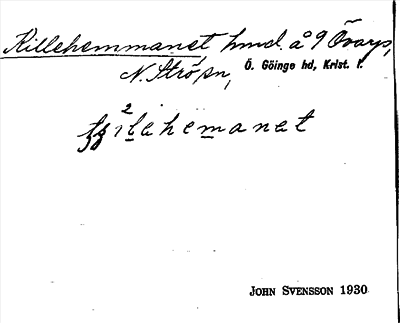 Killehemmanet hmd. å 9 Övarp,
N. Strö sn, Ö. Göinge hd, Krist. l.
John Svensson 1930